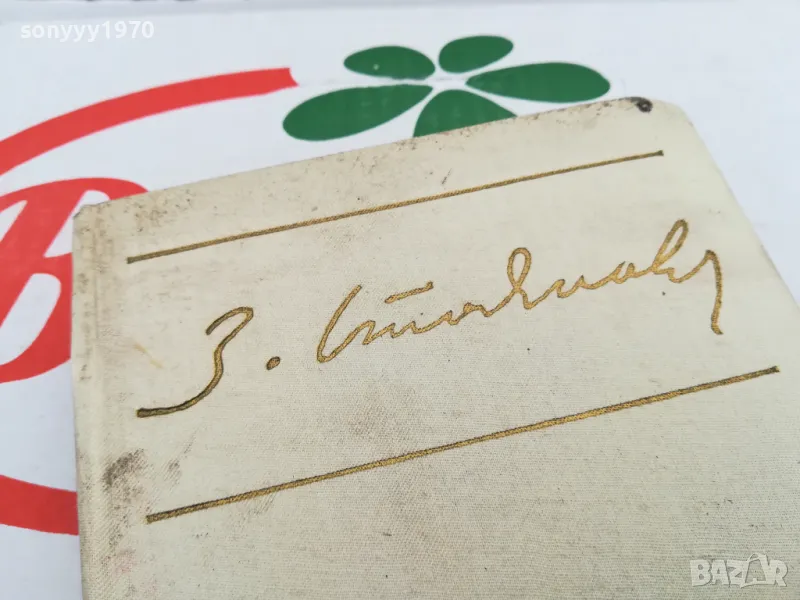 sonyyy1970
З. Стояновъ
BAZAR